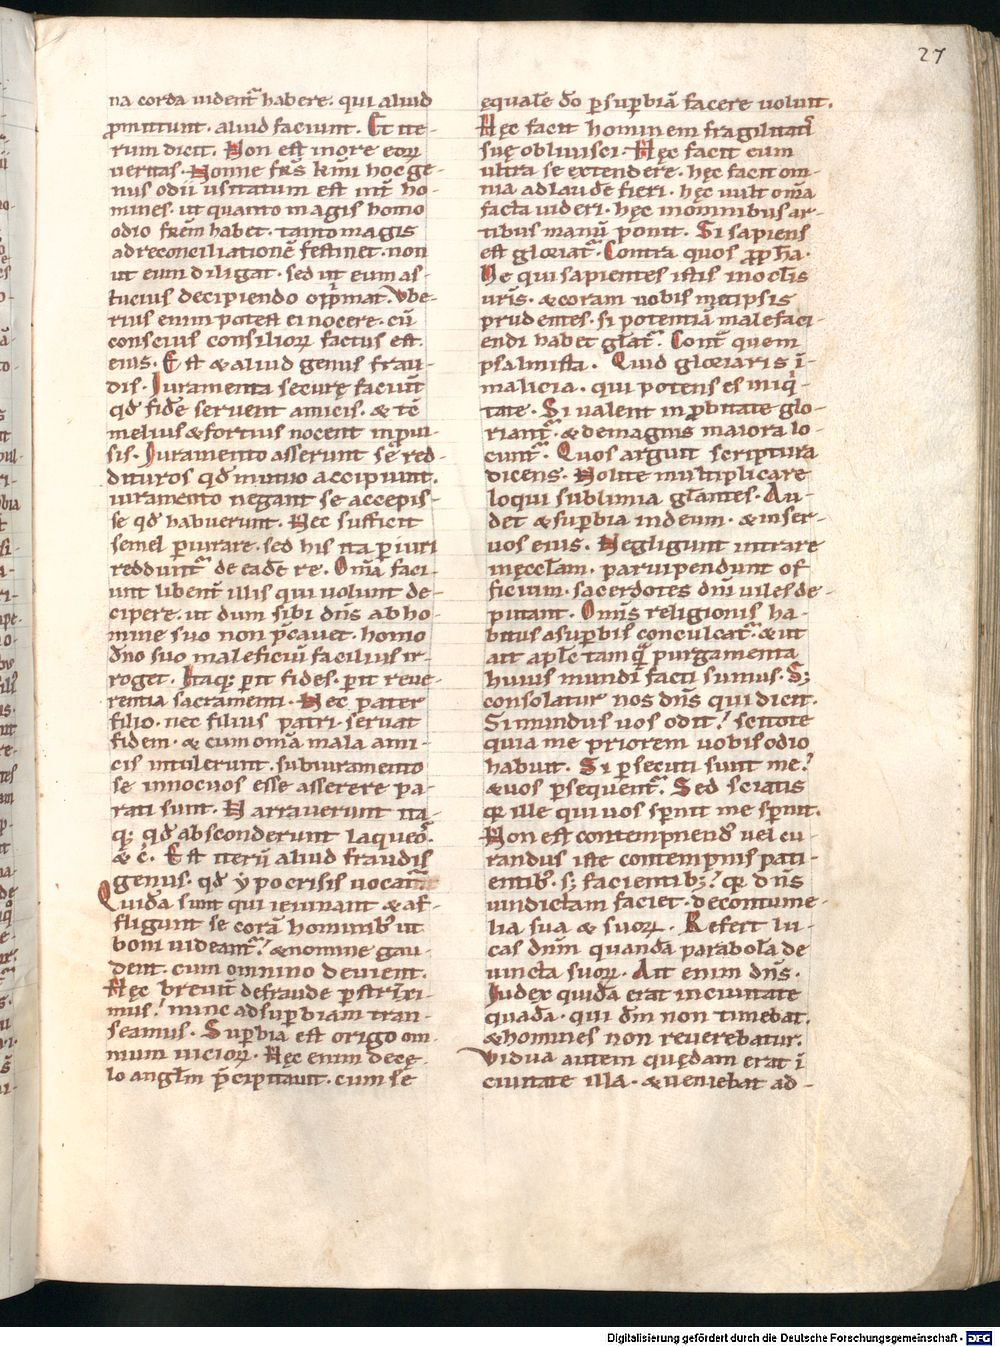 27
na corda uident᷑ habere. qui aliud
ꝓmittunt. aliud faciunt. Et ite-
rum dicit. Non est in ore eoꝝ
ueritas. Nonne fr̄s k̄mi hoc ge-
nus odii usitatum est int̄ ho-
mines. ut quanto magis homo
odio fr̄em habet. tanto magis
ad reconciliationē festinet. non
ut eum diligat. sed ut eum as-
tucius decipiendo opp̄mat. Vbe-
rius enim potest ei nocere. cū
conscius consilioꝝ factus est
eius. Est & aliud genus frau-
dis. Iuramenta securę faciūt
qđ fidē seruent amicis. & tē
melius & fortius nocent inprui-
sis. Iuramento asserunt sē red-
dituros qđ mutuo accipiunt.
iuramento negant se accepis-
se qđ habuerunt. Nec sufficit
semel ꝑiurare. sed his ita ꝑiuri
reddunt᷑ de eadē re. Om̄a faci-
unt libent̄ illis qui uolunt de-
cipere. ut dum sibi dn̄s ab ho-
mine suo non p̄cauet. homo
dn̄o suo maleficiū facilius ir-
roget. Itaq; ꝑit fides. ꝑit reue-
rentia sacramenti. Nec pater
filio. nec filius patri seruat
fidem. & cum om̄a mala ami-
cis intulerunt. sub iuramento
se innocuos esse asserere pa-
rati sunt. Narrauerunt ita-
q; qđ absconderunt laqueos.
& c̄. Est iterū aliud fraudis
genus. qđ ypocrisis uocat᷑
Quidā sunt qui ieiunant & af-
fligunt se corā hominibꝰ ut
boni uideant᷑. & nomine gau-
dent. cum omnino deuient.
Hęc breuit̄ de fraude ꝑstrīxi-
mus. nunc ad suꝑbiam tran-
seamus. Suꝑbia est origo om-
nium uicioꝝ. Hęc enim de cę-
lo angl̄m p̄cipitauit. cum se
ęqualē dō ꝑ suꝑbiā facere uoluit.
Hęc facit hominem fragilitatis
suę obliuisci. Hęc facit eum
ultra se extendere. hęc facit om-
nia ad laudē fieri. hęc uult om̄a
facta uideri. hęc in omnibus ar-
tibus manū ponit. Si sapiens
est gloriat᷑. Contra quos ꝓph̄a.
Ve qui sapientes estis in oculis
uris̄. & coram uobis metipsis
prudentes. si potentiā malefaci-
endi habet gl̄at᷑. Cont᷑ quem
psalmista. Quid gloriaris ī
malicia. qui potens es iniqi-
tate. Si ualent in ꝓbitate glo-
riant᷑. & de magnis maiora lo-
cunt᷑. Quos arguit scriptura
dicens. Nolite multiplicare
loqui sublimia gl̄antes. Au-
det & suꝑbia in deum. & in ser-
uos eius. Negligunt intrare
in ęccl̄am. paruipendunt of-
ficium. sacerdotes dn̄i uiles de-
putant. Omīs religionis ha-
bitus a suꝑbis conculcat᷑. & ut
ait apl̄c tamquā purgamenta
huius mundi facti sumus. S;
consolatur nos dn̄s qui dicit.
Si mundus uos odit. scitote
quia me priorem uobis odio
habuit. Si ꝑsecuti sunt me.
& uos ꝑsequent᷑. Sed sciatis
qr ille qui uos spnit me spnit.
Non est contempnendꝰ uel cu-
randus iste contempnis pati-
entibꝰ. s; facientibꝫ. qr dn̄s
uindictam faciet. de contume-
lia sua & suoꝝ. Refert lu-
cas dnm̄ quandā parabolā de
uincta suoꝝ. Ait enim dn̄s.
Iudex quidā erat in ciuitate
quadā. qui dm̄ non timebat.
& homines non reuerebatur.
Vidua autem quędam erat ī
ciuitate illa. & ueniebat ad-
Digitalisierung gefördert durch die Deutsche Forschungsgemeinschaft - DFG